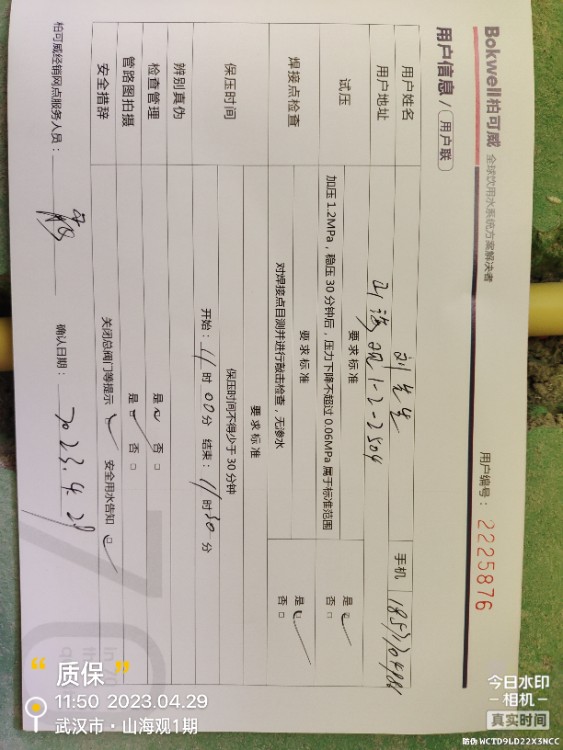 Bokwell柏可威 全球饮用水系统方案解决者
用户编号：2225876
用户信息 / 用户联
用户姓名 刘先生 手机
用户地址 山海观1-2-2504
试压 要求标准
加压 1.2MPa，稳压 30 分钟后，压力下降不超过 0.06MPa 属于标准范围
是 ☑
否 □
焊接点检查 要求标准
对焊接点目测并进行敲击检查，无渗水
是 ☑
否 □
保压时间 要求标准
保压时间不得少于 30 分钟
开始：11 时 00 分 结束：11 时 30 分
辨别真伪
检查管理 是 ☑ 否 □
管路图拍摄 是 ☑ 否 □
安全措辞 关闭总阀门等提示 ☑ 安全用水告知 ☑
柏可威经销网点服务人员：
确认日期：2023.4.29
“ 质保 ”
11:50 2023.04.29
武汉市·山海观1期
今日水印
-相机-
真实时间
防伪 WCTD9LD22X3NCC